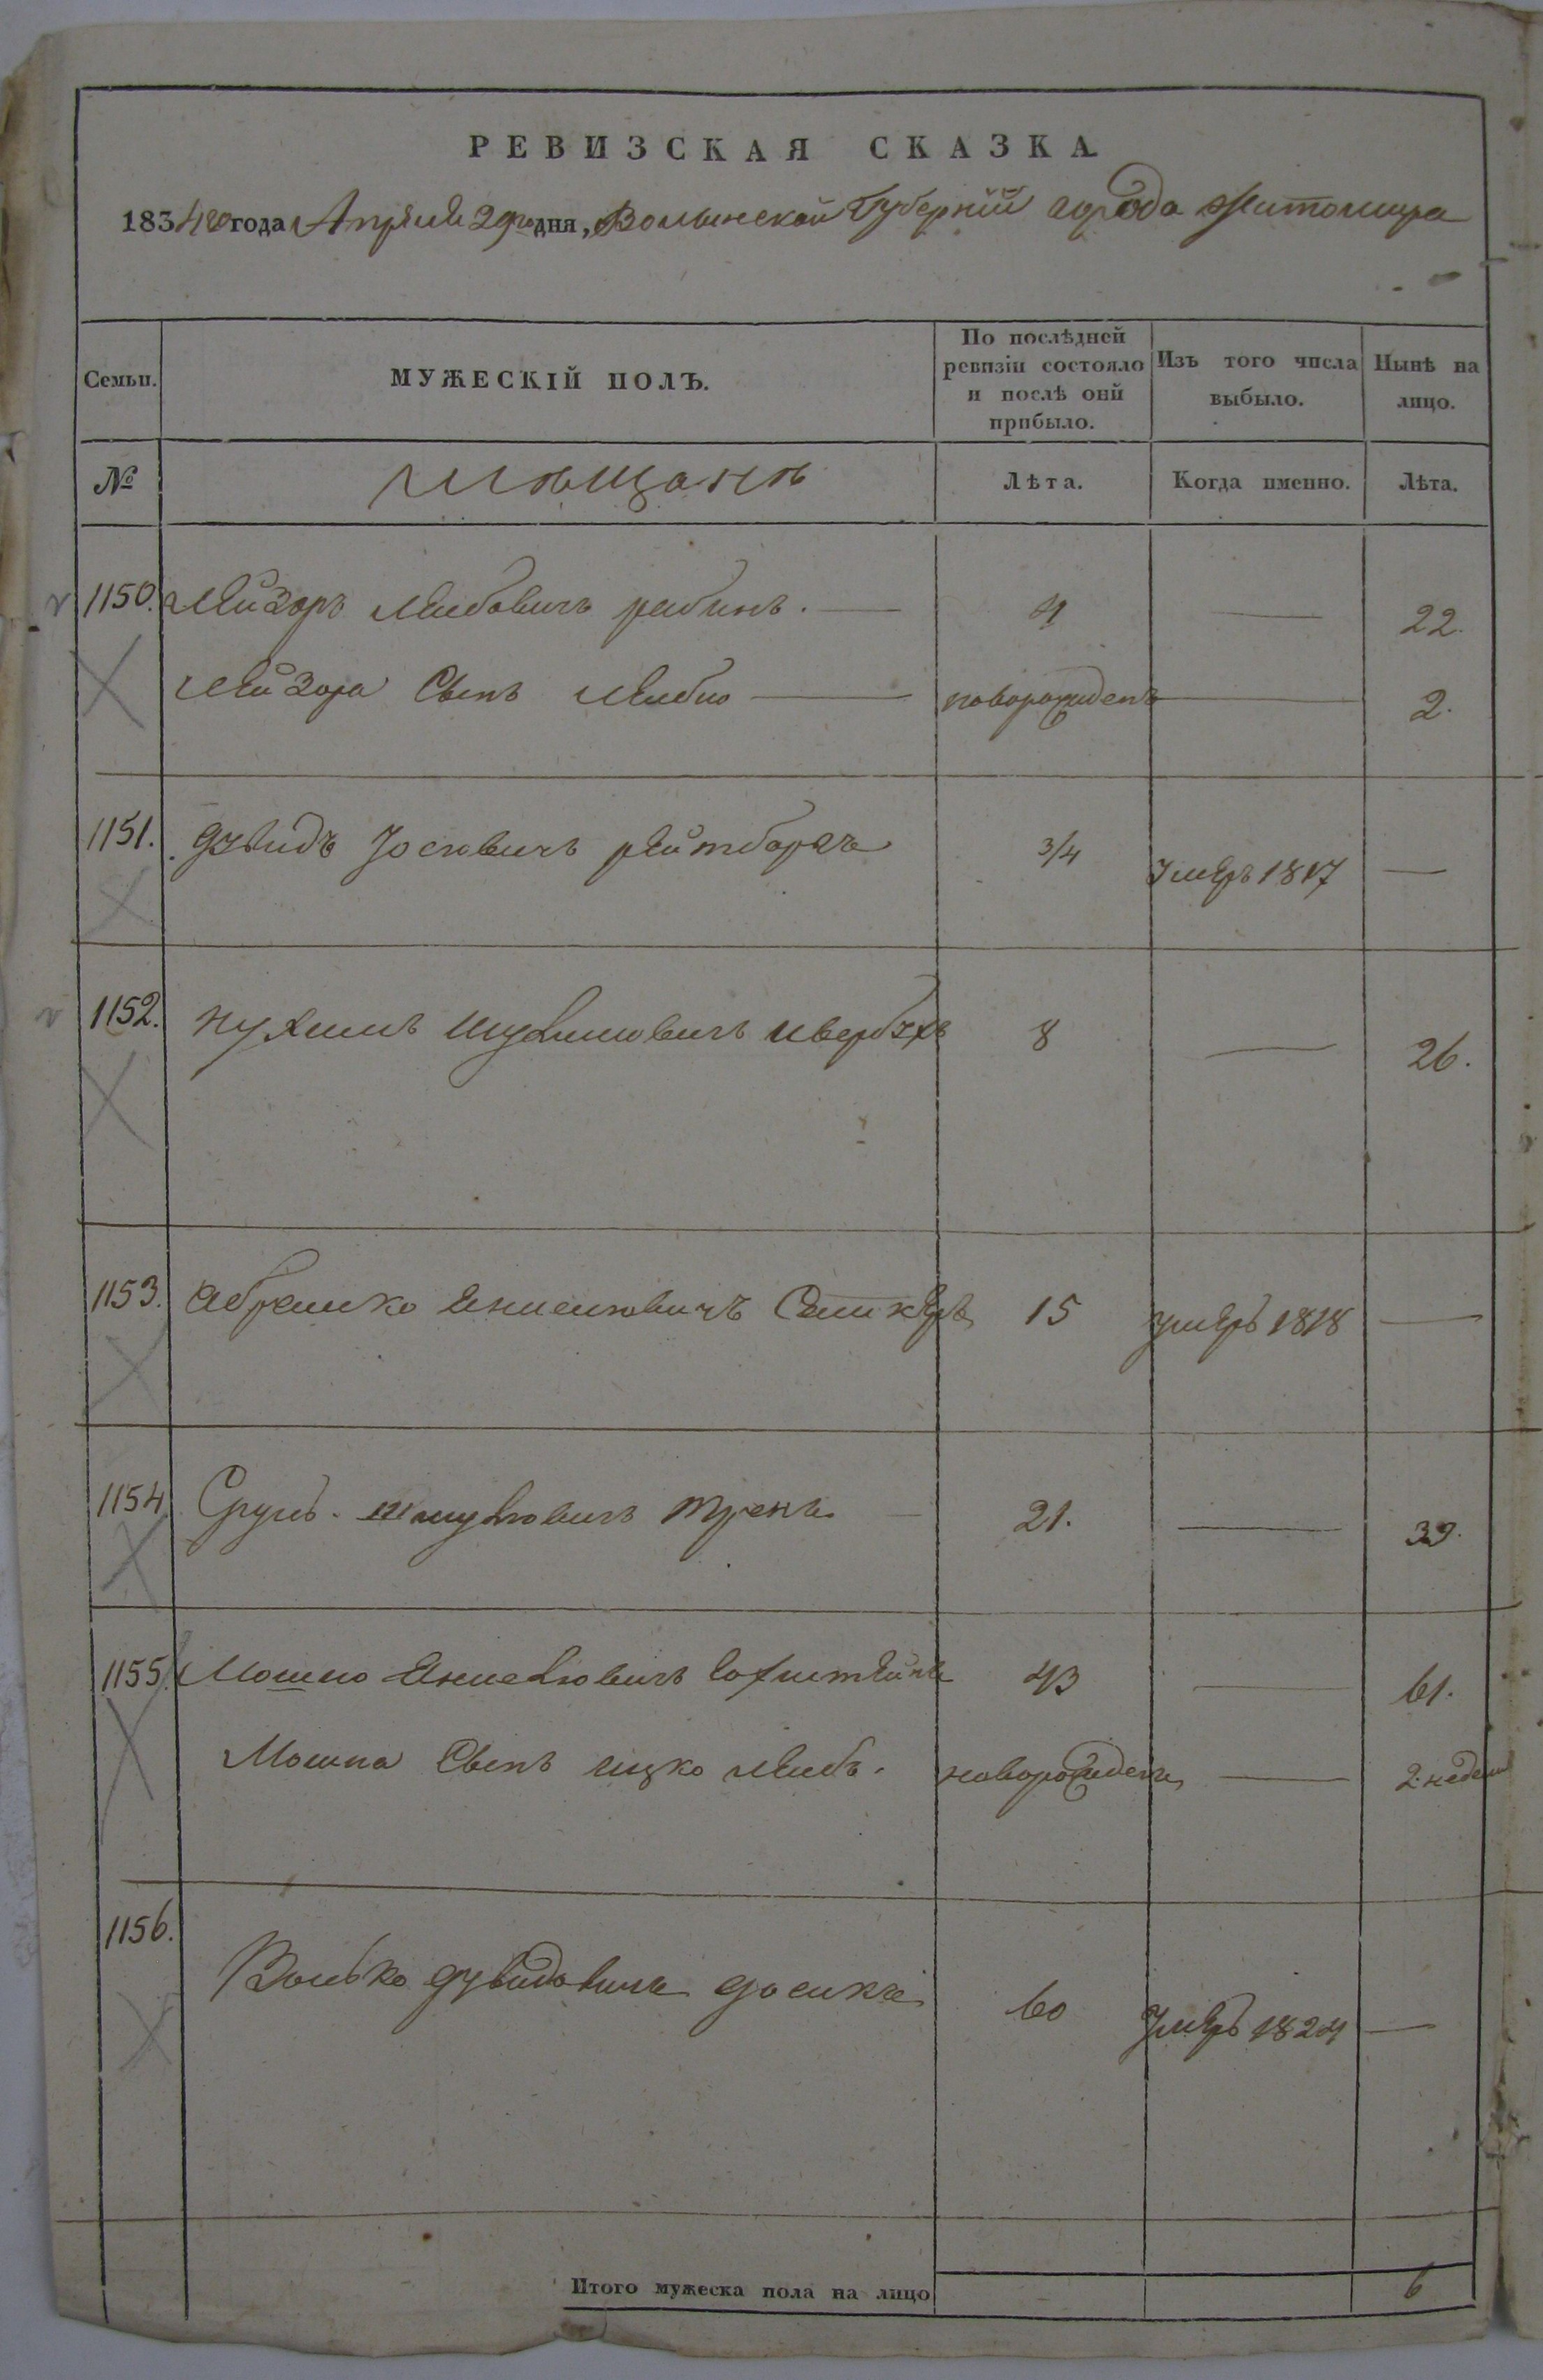 РЕВИЗСКАЯ СКАЗКА
1834го года Апреля 29го дня, Волынской Губерніи города Житомира
Семьи.
МУЖЕСКІЙ ПОЛЪ.
По послѣдней ревизіи состояло и послѣ оной прибыло.
Изъ того числа выбыло.
Нынѣ на лицо.
№
мѣщанъ
Лѣта.
Когда именно.
Лѣта.
1150. Лейзоръ Лейбовичъ 4 — 22.
Лейзора Сынъ Лейбко — новорожденъ — 2.
1151. Дувидъ Іосіовичъ 3/4 умеръ 1817 —
1152. Нухимъ 8 — 26.
1153. Абрамко 15 умеръ 1818 —
1154 Сруль Шмулковичъ — 21. — 39.
1155. Мошко 43 — 61.
Мошка Сынъ Ицко Лейбъ. новорожденъ — 2: недели
1156.
Волько Дувидовичъ 60 умеръ 1824 —
Итого мужеска пола на лицо 6